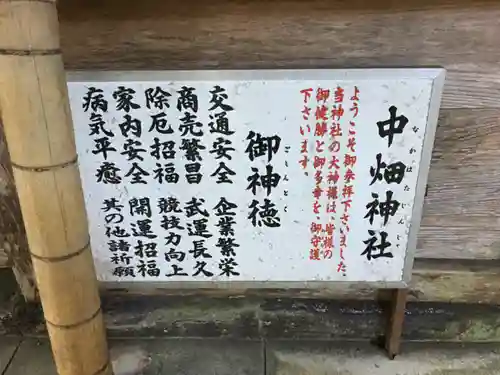 中畑神社
なかはたじんじゃ
ようこそ御来拝下さいました
当神社の大神様は、皆様の
御健勝と御多幸を、御守護
下さいます。
御神徳
ごしんとく
交通安全 企業繁栄
商売繁昌 武運長久
除厄招福 競技力向上
家内安全 開運招福
病気平癒 其の他諸祈願